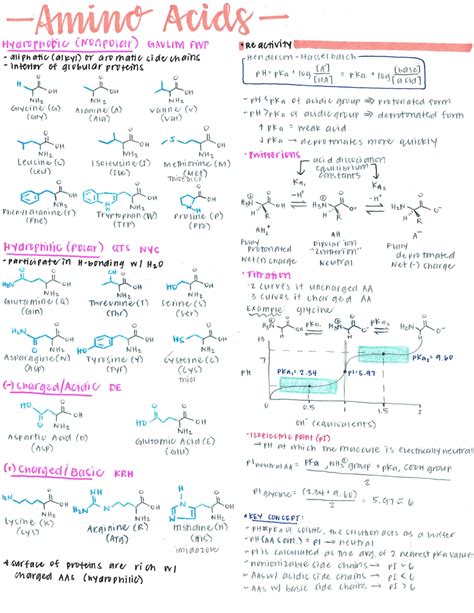 — Amino Acids —
Hydrophobic (Nonpolar) GAVLIM FWP
- aliphatic (alkyl) or aromatic side chains
- interior of globular proteins
Glycine (G)
(Gly)
Alanine (A)
(Ala)
Valine (V)
(Val)
Leucine (L)
(Leu)
Isoleucine (I)
(Ile)
Methionine (M)
(Met)
Phenylalanine (F)
(Phe)
Tryptophan (W)
(Trp)
Proline (P)
(Pro)
Hydrophilic (Polar) QTS NYC
- participate in H-bonding w/ H2O
Glutamine (Q)
(Gln)
Threonine (T)
(Thr)
Serine (S)
(Ser)
Asparagine (N)
(Asp)
Tyrosine (Y)
(Tyr)
Cysteine (C)
(Cys)
thiol
(-) Charged/Acidic DE
Aspartic Acid (D)
(Asp)
Glutamic Acid (E)
(Glu)
(+) Charged/Basic KRH
Lysine (K)
(Lys)
Arginine (R)
(Arg)
Histidine (H)
(His)
imidazole
* surface of proteins are rich w/
charged AAs (hydrophilic)
• Reactivity
- Henderson-Hasselbalch
pH = pKa + log [A-]/[HA] = pKa + log [base]/[acid]
- pH < pKa of acidic group ⇒ protonated form
- pH > pKa of acidic group ⇒ deprotonated form
↑ pKa = weak acid
↓ pKa → deprotonates more quickly
• Zwitterions
acid dissociation
equilibrium
constants
Ka1
Ka2
-H+
-H+
Fully
protonated
Net (+) charge
Dipolar ion
"zwitterion"
Neutral
Fully
deprotonated
Net (-) charge
• Titration
- 2 curves if uncharged AA
3 curves if charged AA
Example: glycine
pKa1
pKa2
13
pH
7
0
pKa1 = 2.34
pI = 5.97
pKa2 = 9.60
0.5
1
1.5
2
OH- (equivalents)
• Isoelectric point (pI)
→ pH at which the molecule is electrically neutral
pI neutral AA = pKa, NH3+ group + pKa, COOH group
2
pI glycine = (2.34 + 9.60)
2
= 5.97 ≈ 6
* KEY CONCEPT:
- pH ≈ pKa of solute, the solution acts as a buffer
- pH (AA soln.) = pI → neutral
- pI is calculated as the avg. of 2 nearest pKa values
- nonionizable side chains → pI ~ 6
- AAs w/ acidic side chains → pI < 6
- AAs w/ basic side chains → pI > 6